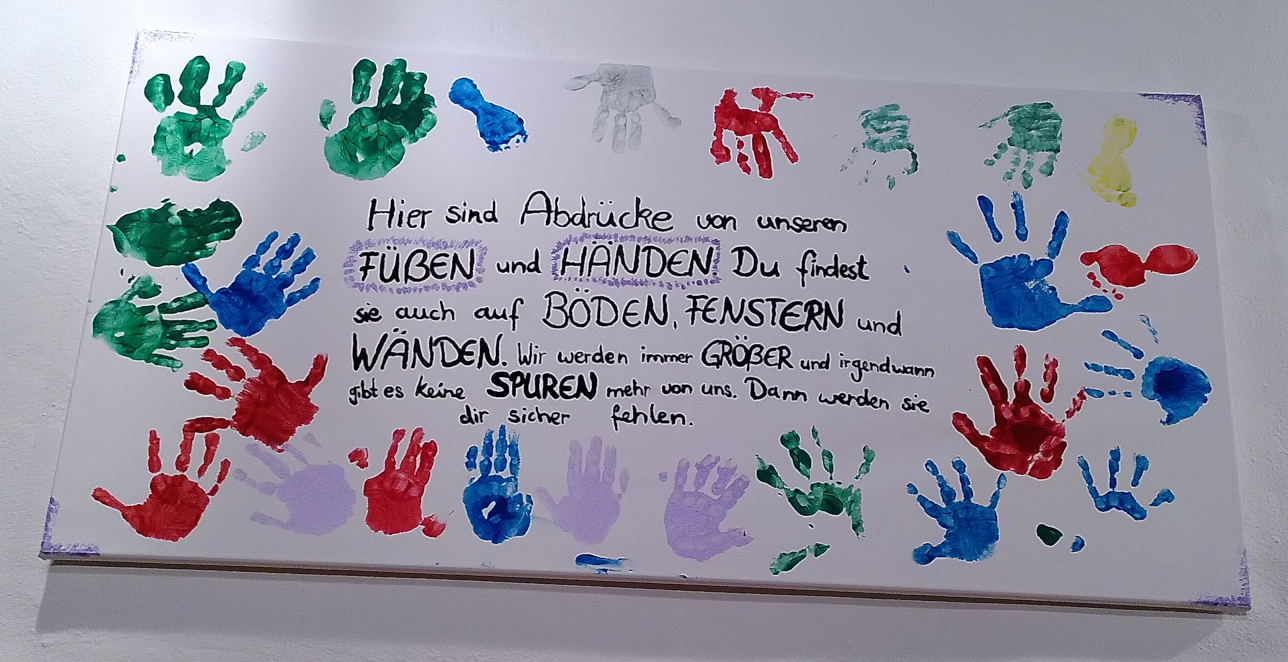 Hier sind Abdrücke von unseren
FÜßEN und HÄNDEN Du findest
sie auch auf BÖDEN, FENSTERN und
WÄNDEN. Wir werden immer GRÖßER und irgendwann
gibt es keine SPUREN mehr von uns. Dann werden sie
dir sicher fehlen.